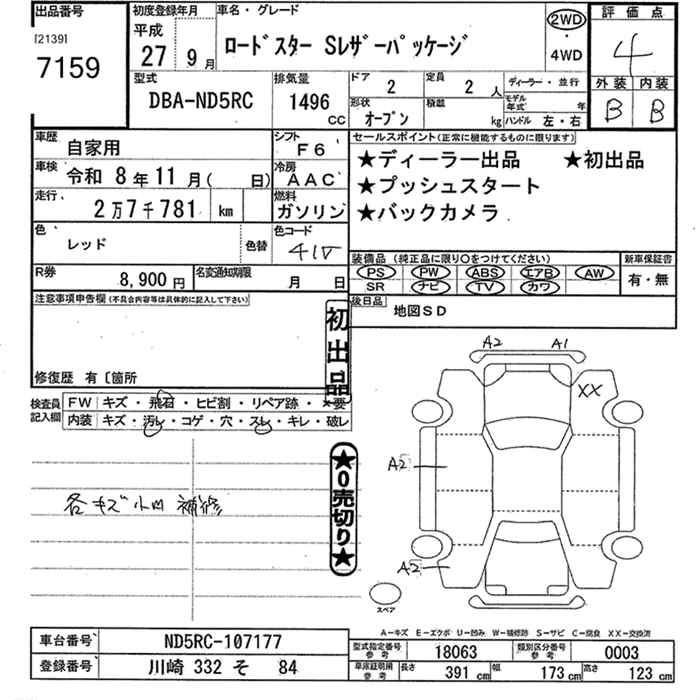 出品番号
[2139]
7159
初度登録年月
平成
27 9月
車名・グレード
ロードスター Sレザーパッケージ
2WD
・
4WD
評価点
4
外装 内装
B B
型式
DBA-ND5RC
排気量
1496 cc
ドア
2
定員
2 人
ディーラー・並行
形状
オープン
積載
kg
モデル年式 年
ハンドル 左・右
車歴
自家用
シフト
F6
車検
令和 8年11月( 日)
冷房
AAC
走行
2万7千781 km
燃料
ガソリン
色
レッド
色替
色コード
41V
R券
8,900円
名変通知期限
月 日
セールスポイント(正常に機能するものに限ります)
★ディーラー出品 ★初出品
★プッシュスタート
★バックカメラ
装備品 (純正品に限り○をつけてください)
PS PW ABS エアB AW
SR ナビ TV カワ
新車保証書
有・無
後日品
地図SD
注意事項申告欄(不具合内容等は具体的に記入して下さい)
修復歴 有〔箇所
初出品
検査員記入欄
FW キズ・飛石・ヒビ割・リペア跡・×要
内装 キズ・汚レ・コゲ・穴・スレ・キレ・破レ
★0売切り★
各キズ小凹 補修
A2 A1
XX
A2
A2
スペア
A-キズ E-エクボ U-凹み W-補修跡 S-サビ C-腐食 XX-交換済
車台番号
ND5RC-107177
登録番号
川崎 332 そ 84
型式指定番号 参考
18063
類別区分番号 参考
0003
車庫証明用 参考
長さ 391 cm 幅 173 cm 高さ 123 cm